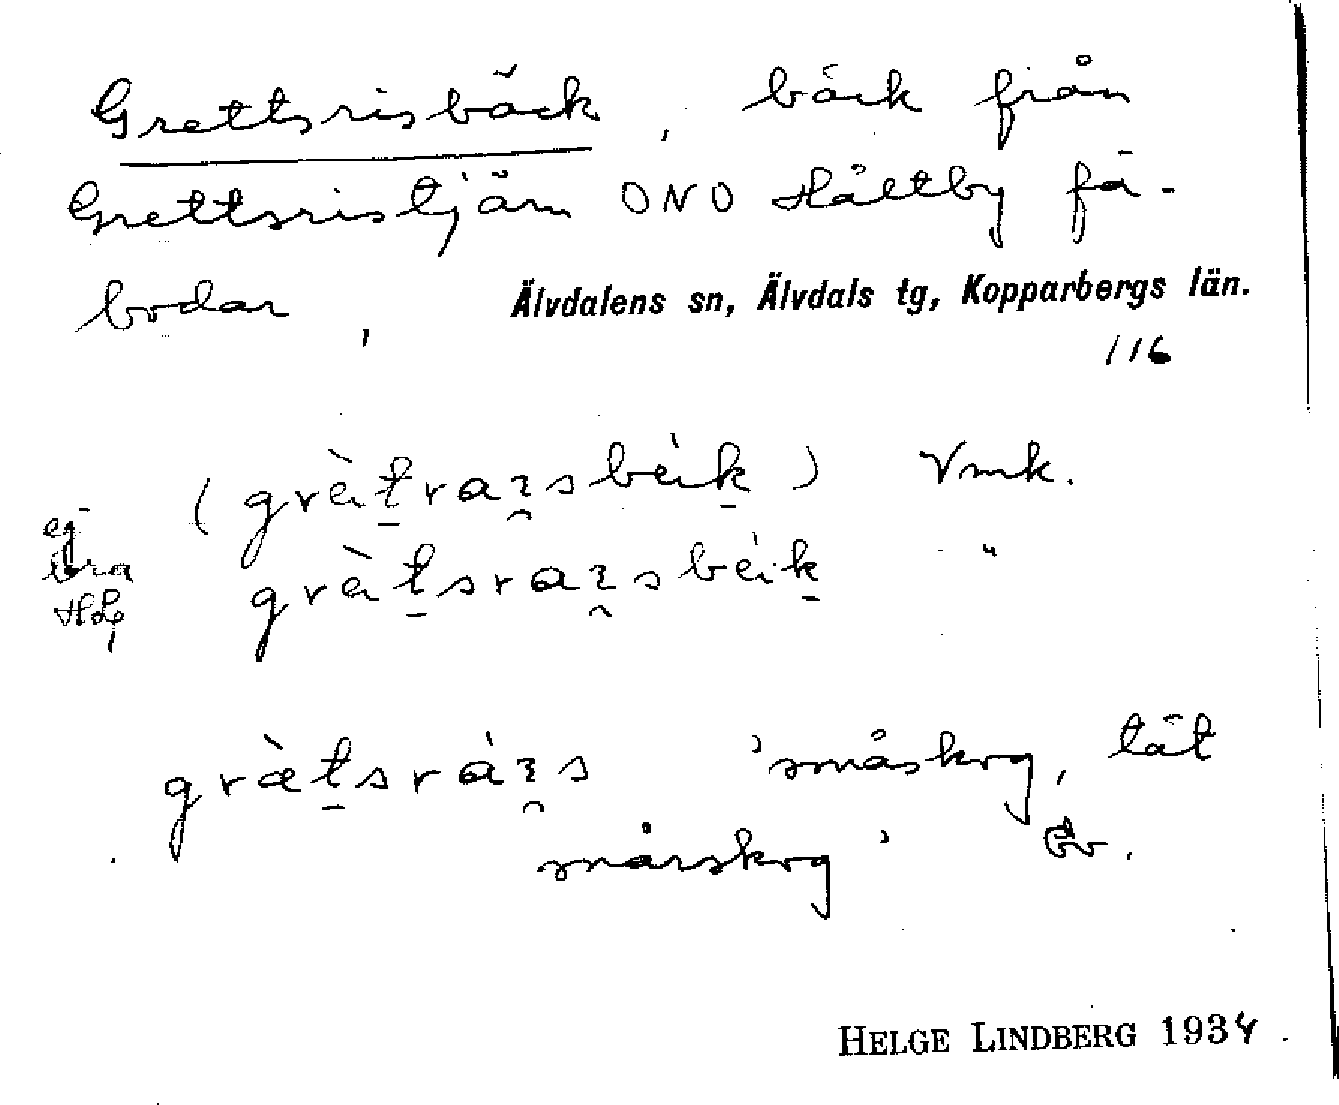 Grettsrisbäck, bäck från
Grettsristjärn ONO Håltby fä-
bodar, Älvdalens sn, Älvdals tg, Kopparbergs län.
116
(grètraꝛsbéik) Vmk.
ej
bra
HL
grètsraꝛsbéik "
grætsráꝛs 'småskog, tät
snårskog' Ev.
HELGE LINDBERG 1934